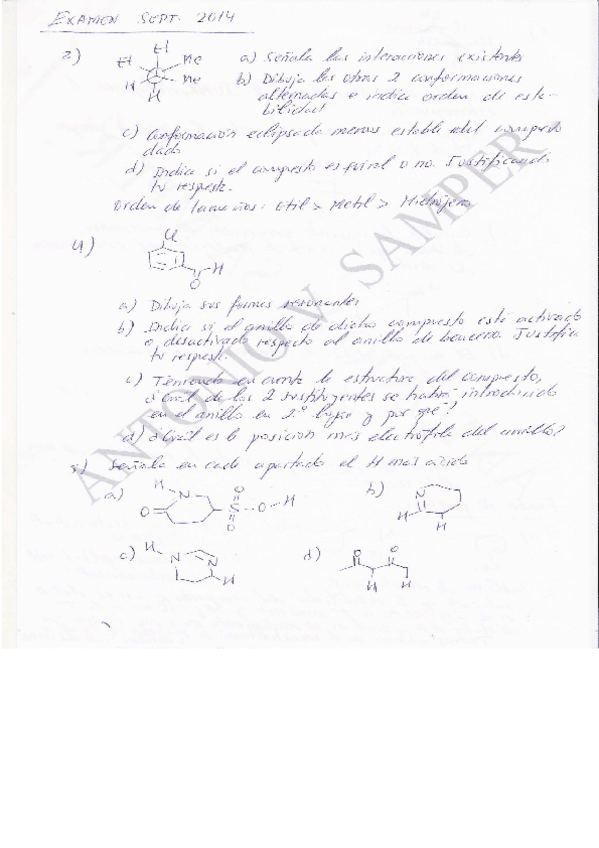 EXAMEN SEPT. 2014
2) Et Et Me Me H H
a) Señala las interacciones existentes
b) Dibuja las otras 2 conformaciones
alternadas e indica orden de esta-
bilidad
c) Conformación eclipsada menos estable del compuesto
dado
d) Indica si el compuesto es quiral o no. Justificando
tu respuesta.
Orden de tamaños: Etil > Metil > Hidrógeno
4) Cl H O
a) Dibuja sus formas resonantes
b) Indica si el anillo de dicho compuesto está activado
o desactivado respecto al anillo de benceno. Justifica
tu respuesta.
c) Teniendo en cuenta la estructura del compuesto,
¿Cuál de los 2 sustituyentes se habrá introducido
en el anillo en 2º lugar y por qué?
d) ¿Cuál es la posición más electrófila del anillo?
Señala en cada apartado el H más ácido
a) H N O O S O H O
b) N H H
c) H N N H
d) O O H H
ANTONIO V. SAMPER